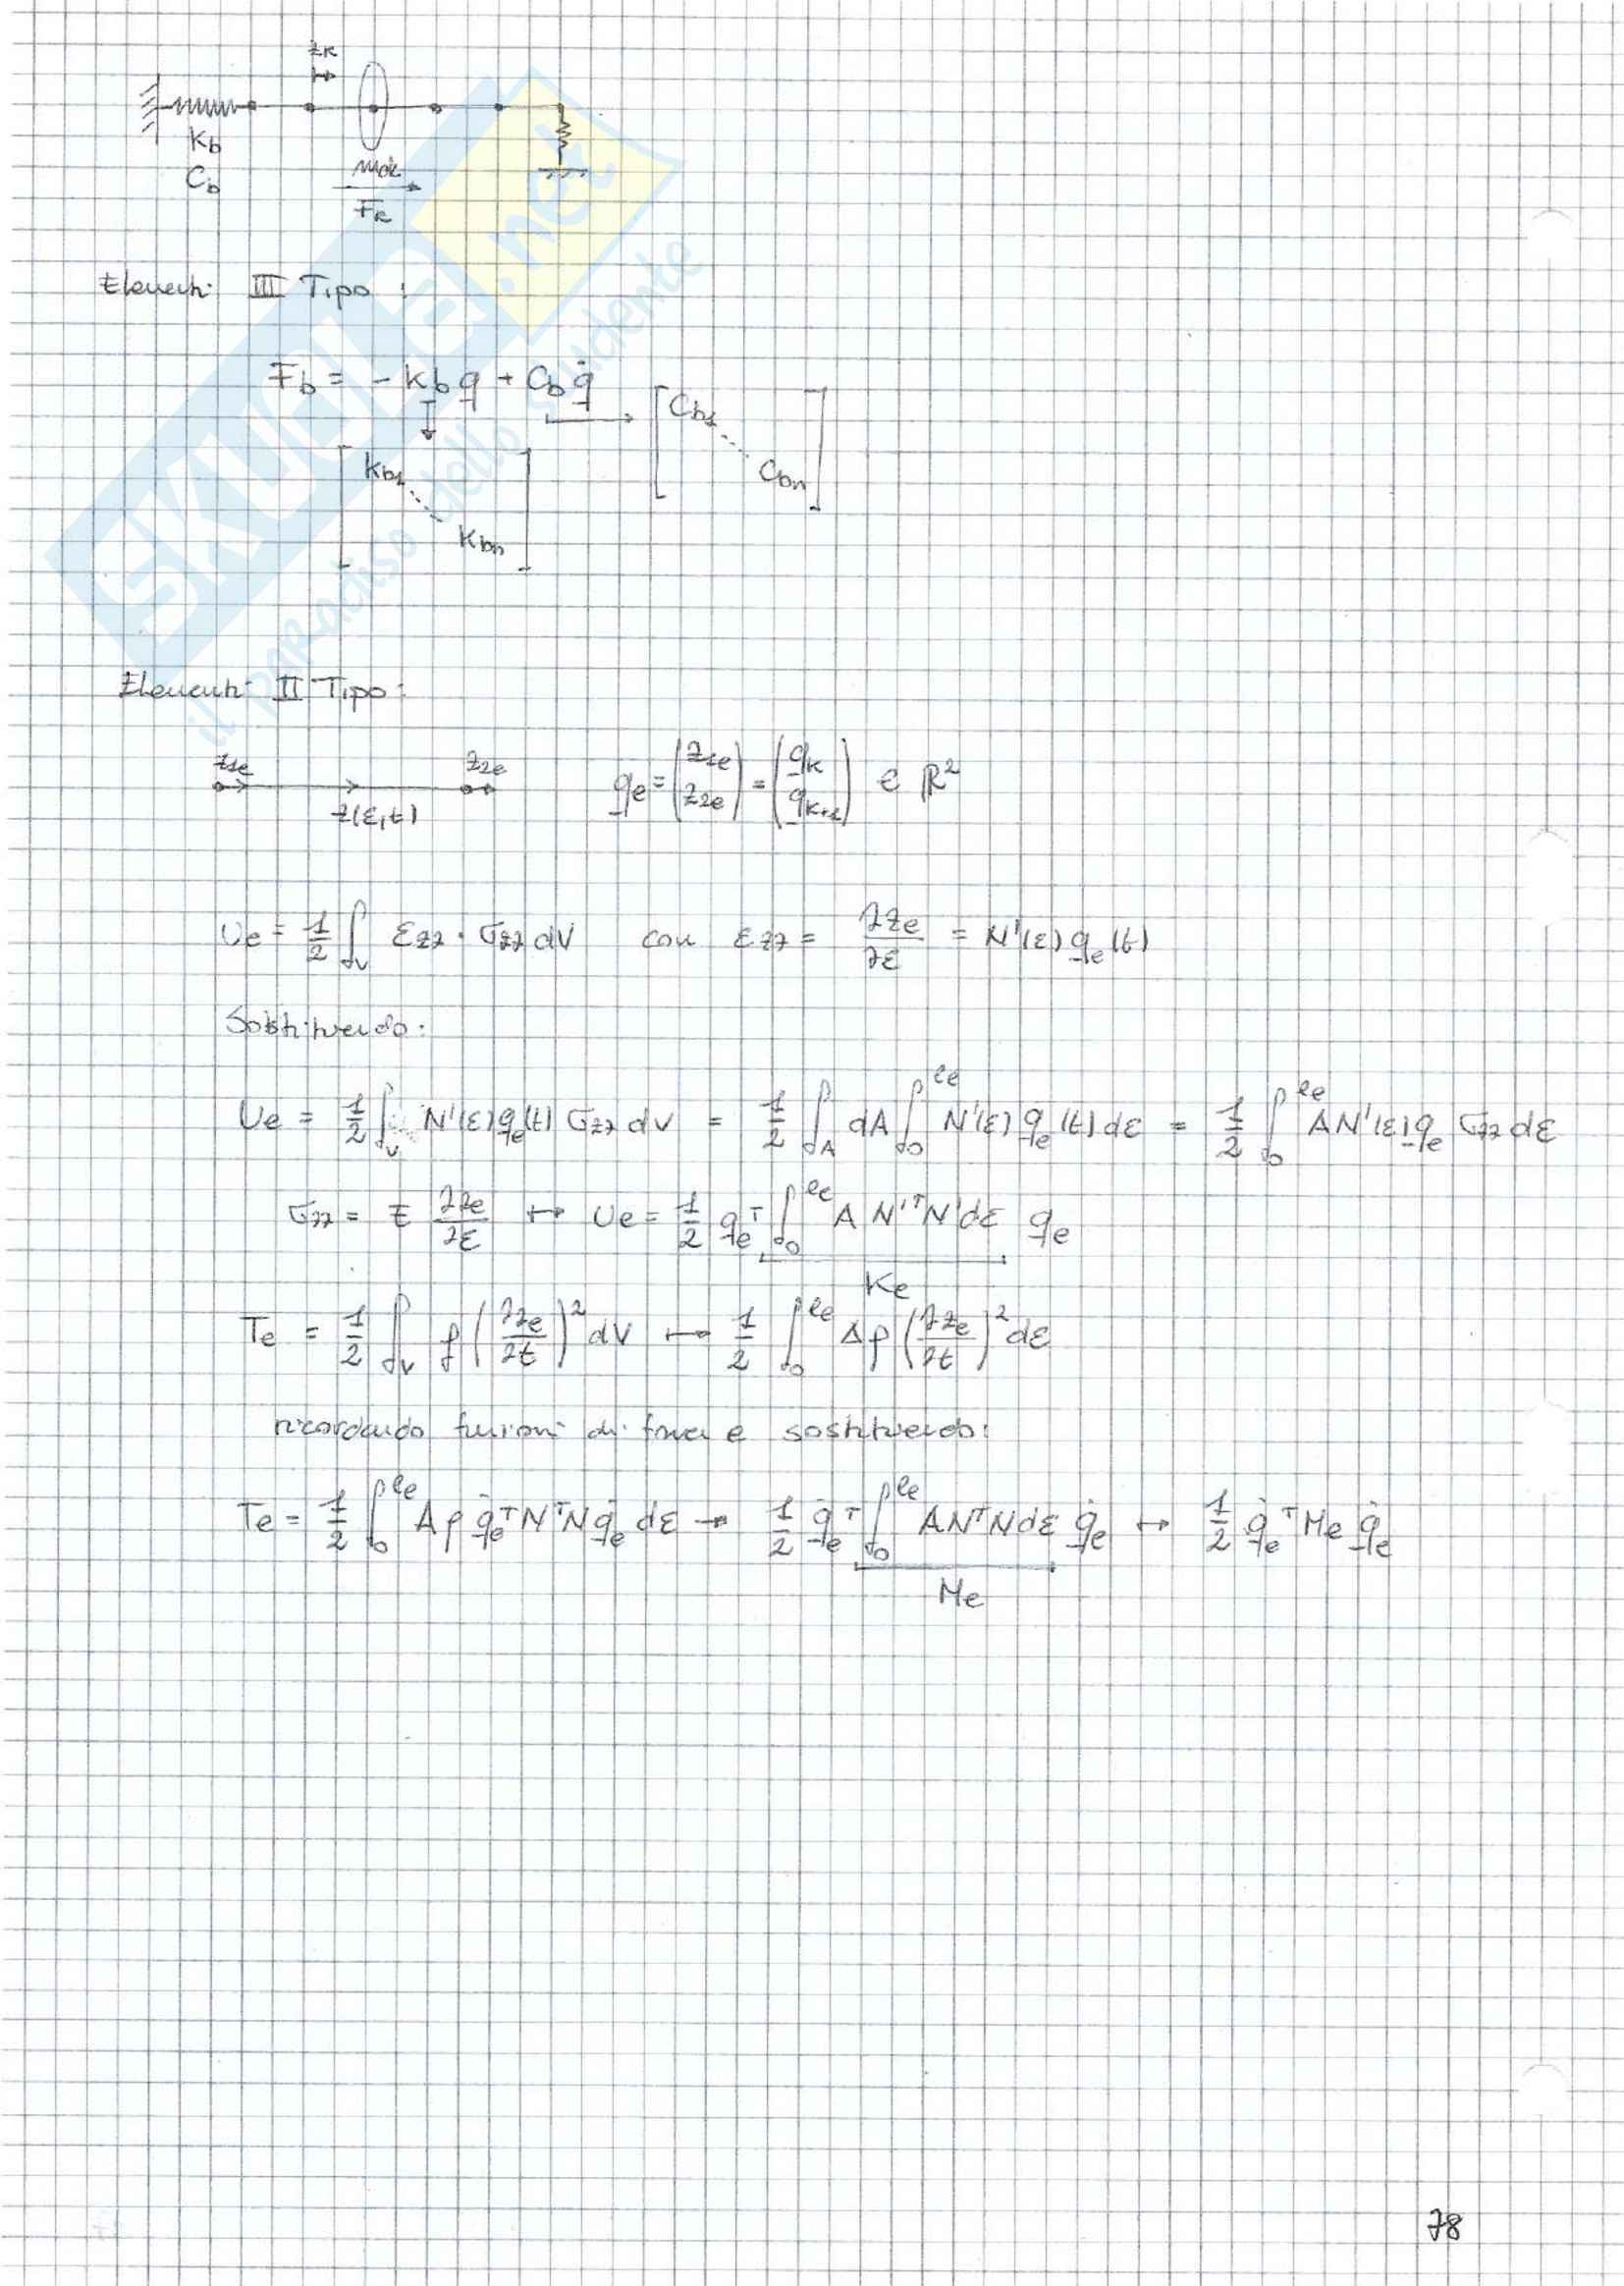 zk
Kb
Cb
mdk
Fk
Elementi III Tipo :
Fb = - Kb q + Cb q̇
[ Cb1 ⋱ Cbn ]
[ Kb1 ⋱ Kbn ]
Elementi II Tipo :
z1e z2e
z(ε,t)
qe = (z1e z2e) = (qk qk+1) ∈ ℝ²
Ue = 1/2 ∫V εzz · σzz dV con εzz = ∂ze/∂ε = N'(ε) qe(t)
Sostituendo:
Ue = 1/2 ∫V N'(ε) qe(t) σzz dV = 1/2 ∫A dA ∫0^le N'(ε) qe(t) dε = 1/2 ∫0^le A N'(ε) qe σzz dε
σzz = E ∂ze/∂ε ↦ Ue = 1/2 qe^T ∫0^le A N'^T N' dε qe
Ke
Te = 1/2 ∫V ρ (∂ze/∂t)² dV ↦ 1/2 ∫0^le Aρ (∂ze/∂t)² dε
ricordando funzioni di forma e sostituendo:
Te = 1/2 ∫0^le Aρ q̇e^T N^T N q̇e dε → 1/2 q̇e^T ∫0^le A N^T N dε q̇e ↦ 1/2 q̇e^T Me q̇e
Me
78
SKUOLA.net
il paradiso dello studente